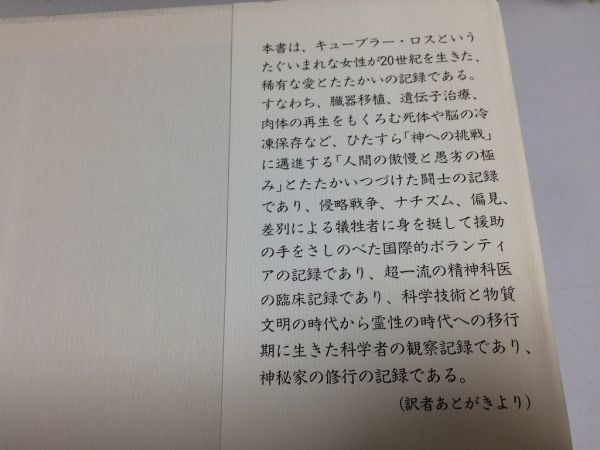 本書は、キューブラー・ロスという
たぐいまれな女性が20世紀を生きた、
稀有な愛とたたかいの記録である。
すなわち、臓器移植、遺伝子治療、
肉体の再生をもくろむ死体や脳の冷
凍保存など、ひたすら「神への挑戦」
に邁進する「人間の傲慢と愚劣の極
み」とたたかいつづけた闘士の記録
であり、侵略戦争、ナチズム、偏見、
差別による犠牲者に身を挺して援助
の手をさしのべた国際的ボランティ
アの記録であり、超一流の精神科医
の臨床記録であり、科学技術と物質
文明の時代から霊性の時代への移行
期に生きた科学者の観察記録であり、
神秘家の修行の記録である。
(訳者あとがきより)